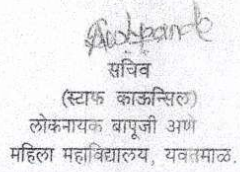 सचिव
(स्टाफ काऊन्सिल)
लोकनायक बापूजी अणे
महिला महाविद्यालय, यवतमाळ.